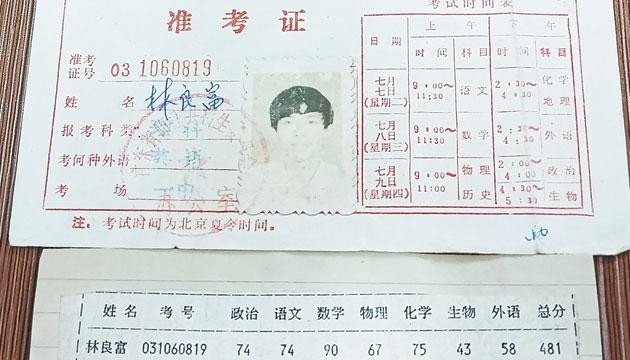 准考证
准考证号 031060819
姓名 林良富
报考科类
考何种外语
考场
注：考试时间为北京夏令时间。
考试时间表
日期 上午 下午
时间 科目 时间 科目
七月七日(星期二) 9:00~11:30 语文 2:30~4:30 化学 地理
七月八日(星期三) 9:00~11:30 数学 2:30~4:30 外语
七月九日(星期四) 9:00~11:00 物理 历史 2:00~4:00 政治
4:30~5:30 生物
姓名 考号 政治 语文 数学 物理 化学 生物 外语 总分
林良富 031060819 74 74 90 67 75 43 58 481